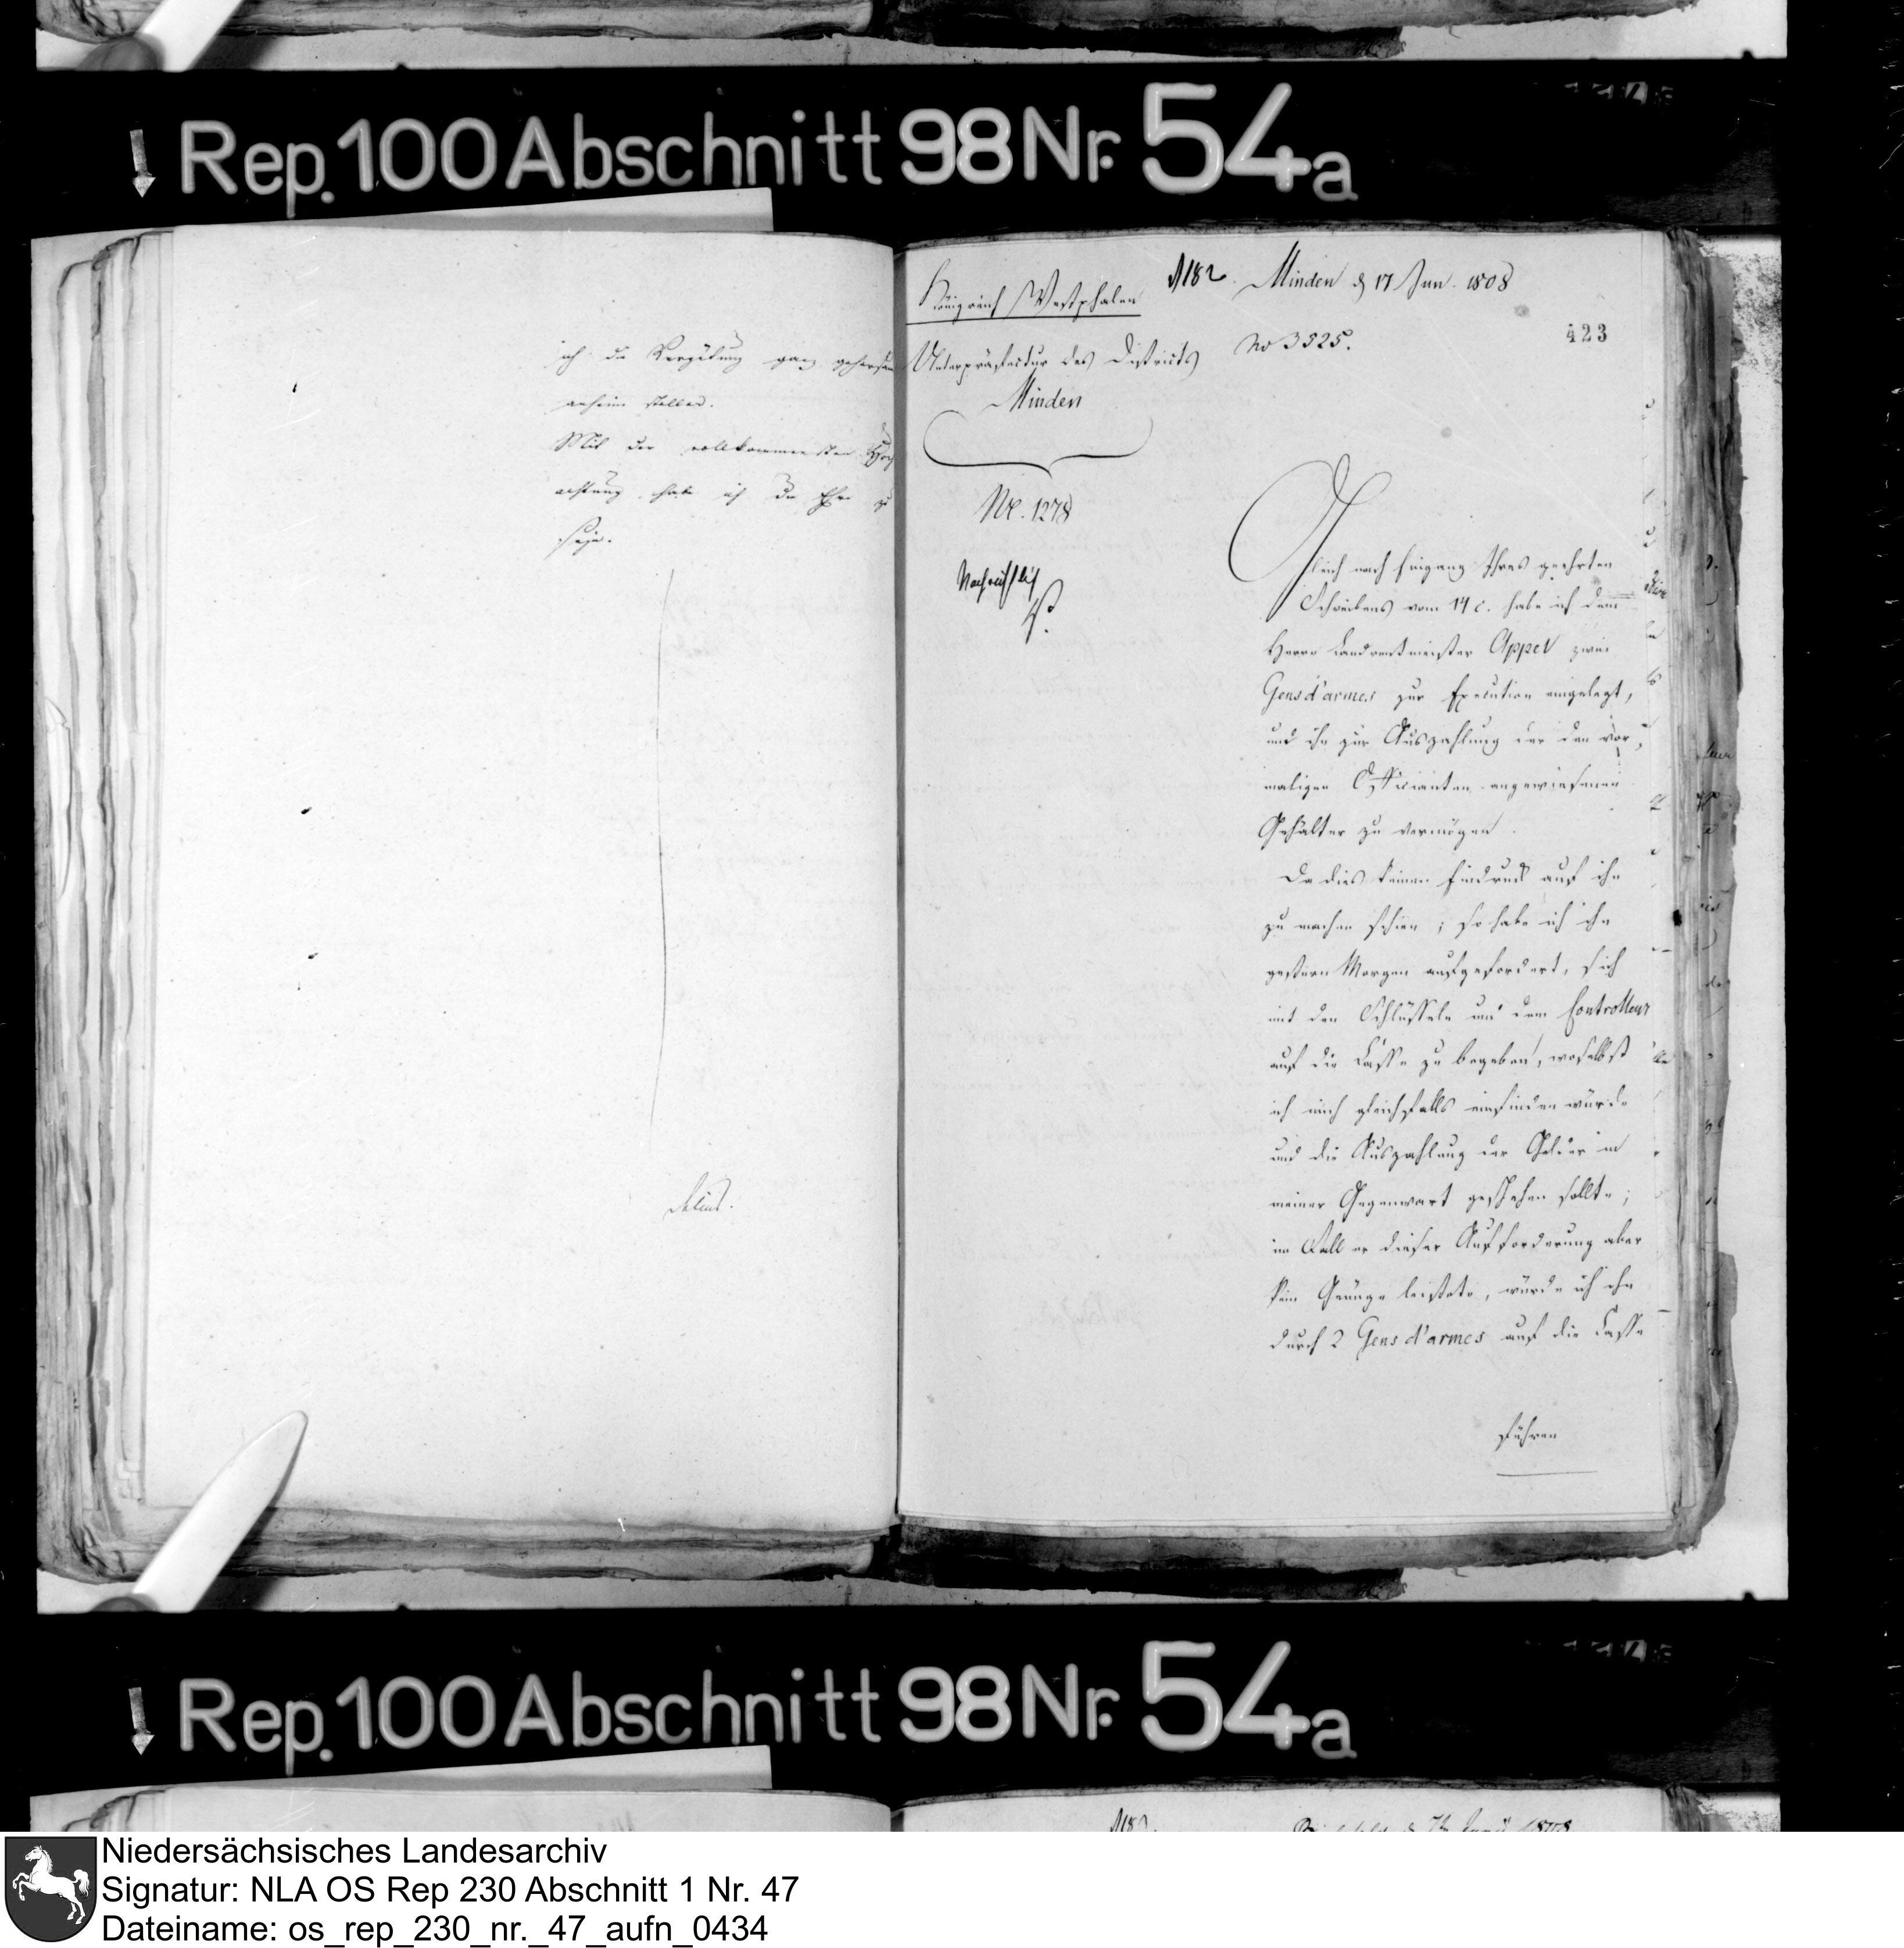 Rep. 100 Abschnitt 98 Nr. 54a
ich die Vergütung ganz gehorsam
anheim stellen.
Mit der vollkommensten Hoch
achtung habe ich die Ehre zu
seyn.
Delius.
Königreich Westphalen
Unterpräfectur des Districts
Minden
Nr. 1278
182. Minden d 17 Jun. 1808
No 3525.
423
Gleich nach Eingang Ihres geehrten
Schreibens vom 14 c. habe ich dem
Herrn Landrentmeister Appel zwei
Gensd'armes zur Execution eingelegt,
und ihn zur Auszahlung der den vor
maligen Officianten angewiesenen
Gehälter zu vermögen.
Da dies keinen Eindruck auf ihn
zu machen schien; so habe ich ihn
gestern Morgen aufgefordert, sich
mit den Schlüsseln und dem Controlleur
auf die Casse zu begeben, woselbst
ich mich gleichfalls einfinden würde
und die Auszahlung der Gelder in
meiner Gegenwart geschehen sollte;
im Fall er dieser Aufforderung aber
kein Genüge leistete, würde ich ihn
durch 2 Gens d'armes auf die Casse
führen
Rep. 100 Abschnitt 98 Nr. 54a
Niedersächsisches Landesarchiv
Signatur: NLA OS Rep 230 Abschnitt 1 Nr. 47
Dateiname: os_rep_230_nr._47_aufn_0434